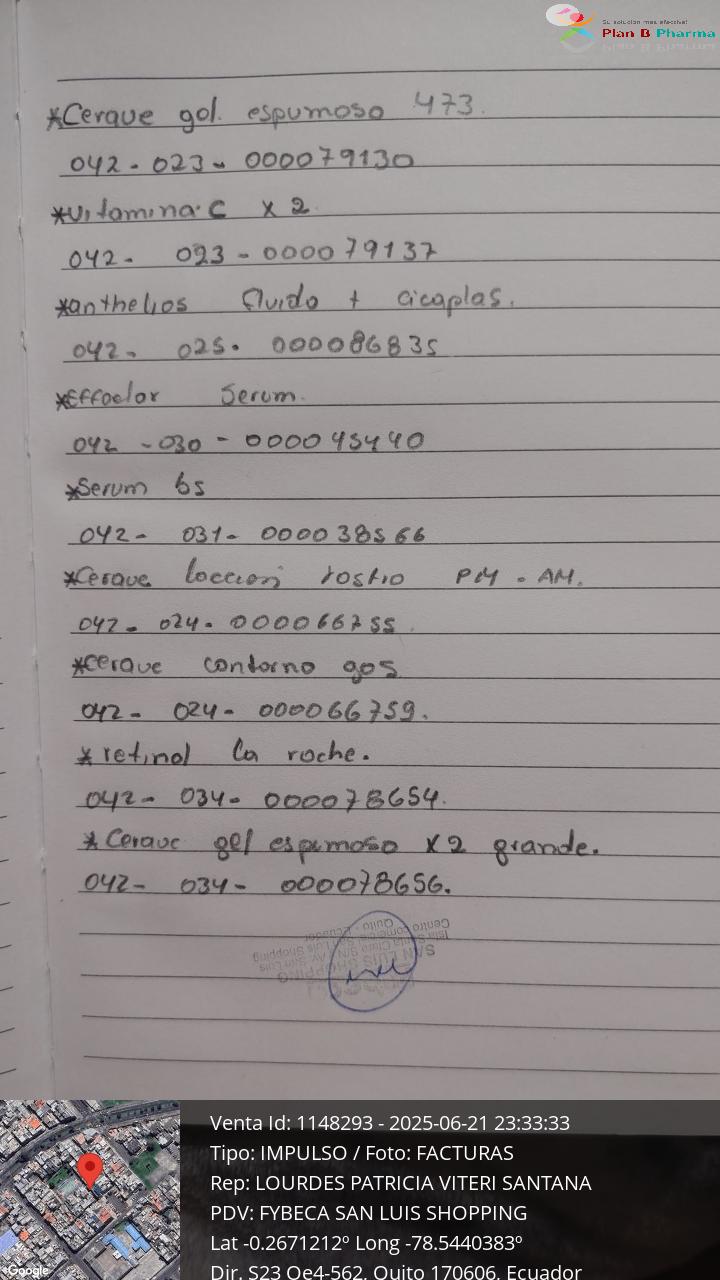 Su solución más efectiva!
Plan B Pharma
*Cerave gol. espumoso 473.
042-023-000079130
*Vitamina C x 2
042- 023-000079137
*anthelios fluido + cicaplas.
042- 025- 000086835
*Effaclar Serum.
042-030-000045440
*Serum b5
042- 031-000038566
*Cerave loccion rostro PM - AM.
042-024-000066755
*Cerave contorno gos
042- 024- 000066759.
*retinol la roche.
042- 034- 000078654.
*Cerave gel espumoso x2 grande.
042- 034- 000078656.
SAN LUIS SHOPPING
Isla Santa Clara S/N y Av. San Luis
Centro Comercial San Luis Shopping
Quito - Ecuador
Venta Id: 1148293 - 2025-06-21 23:33:33
Tipo: IMPULSO / Foto: FACTURAS
Rep: LOURDES PATRICIA VITERI SANTANA
PDV: FYBECA SAN LUIS SHOPPING
Lat -0.2671212º Long -78.5440383º
Dir. S23 Oe4-562, Quito 170606, Ecuador
Google